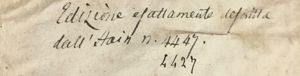 Edizione esattamente descritta
dall'Hain n. 4447.
4427